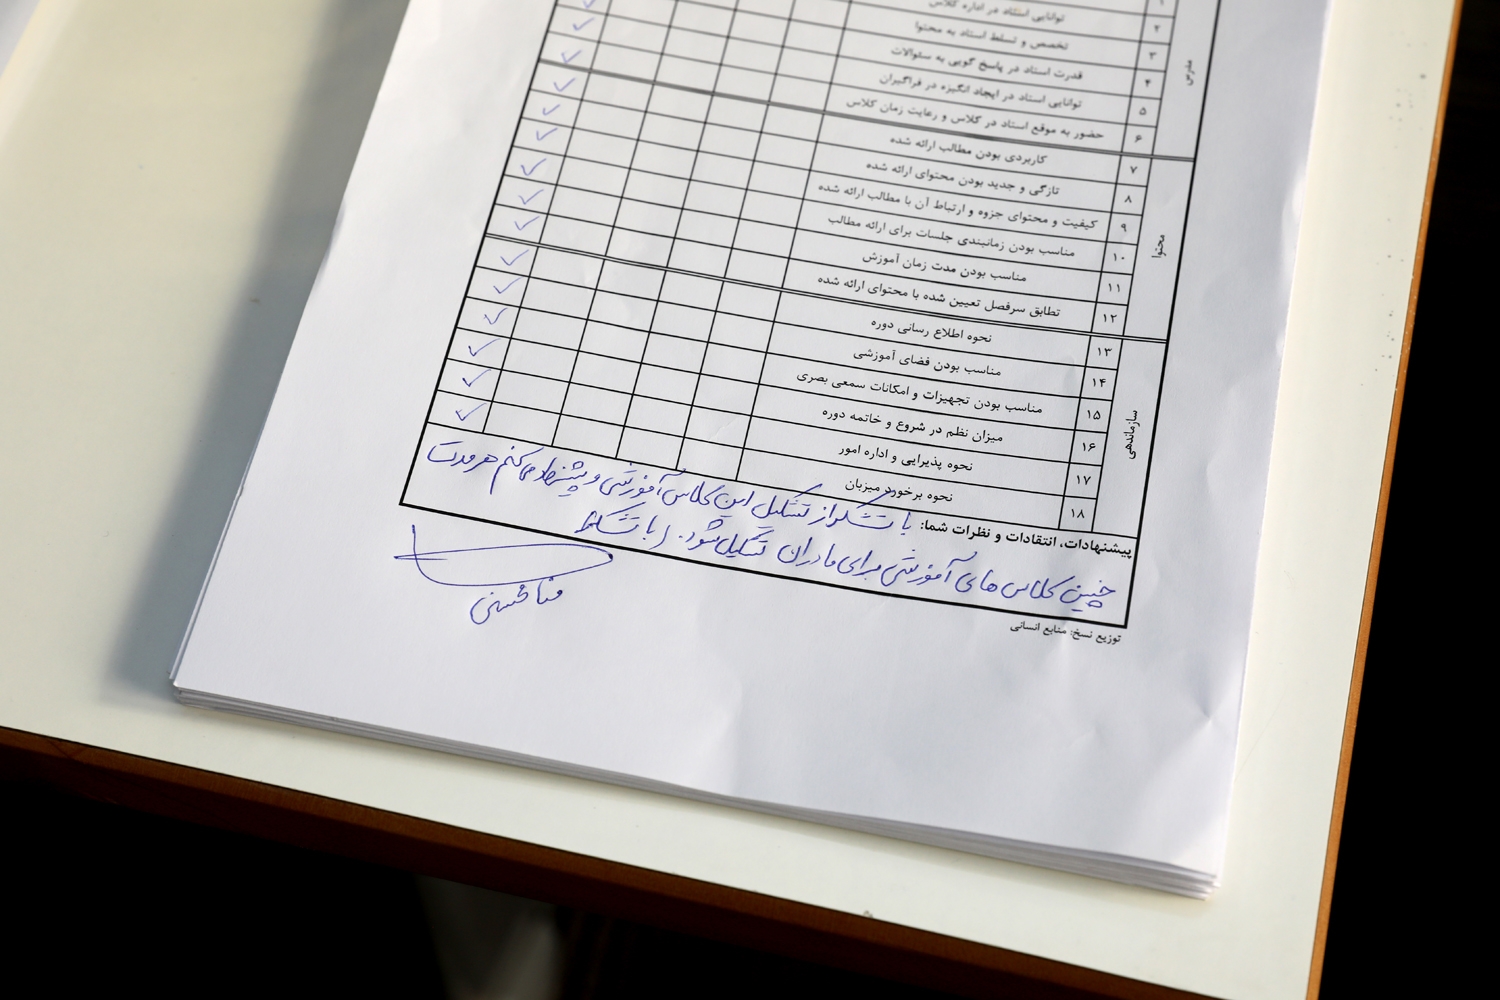 ۱
مدرس
۲ توانایی استاد در اداره کلاس
۳ تخصص و تسلط استاد به محتوا
۴ قدرت استاد در پاسخ گویی به سئوالات
۵ توانایی استاد در ایجاد انگیزه در فراگیران
۶ حضور به موقع استاد در کلاس و رعایت زمان کلاس
محتوا
۷ کاربردی بودن مطالب ارائه شده
۸ تازگی و جدید بودن محتوای ارائه شده
۹ کیفیت و محتوای جزوه و ارتباط آن با مطالب ارائه شده
۱۰ مناسب بودن زمانبندی جلسات برای ارائه مطالب
۱۱ مناسب بودن مدت زمان آموزش
۱۲ تطابق سرفصل تعیین شده با محتوای ارائه شده
سازماندهی
۱۳ نحوه اطلاع رسانی دوره
۱۴ مناسب بودن فضای آموزشی
۱۵ مناسب بودن تجهیزات و امکانات سمعی بصری
۱۶ میزان نظم در شروع و خاتمه دوره
۱۷ نحوه پذیرایی و اداره امور
۱۸ نحوه برخورد میزبان
پیشنهادات، انتقادات و نظرات شما: با تشکر از تشکیل این کلاس آموزشی و پیشنهاد می کنم هر مدت
چنین کلاس های آموزشی برای مادران تشکیل شود. با تشکر
توزیع نسخ: منابع انسانی